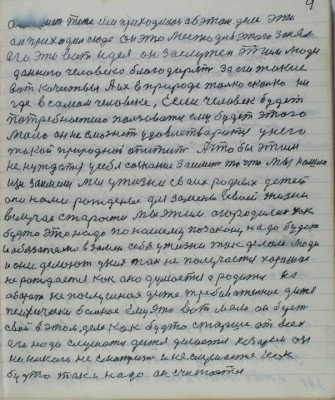 9
им приходилось об этом деле это
он приходил сюда он это место для этого занял
его это вот идея он заслужен этим люди
данного человека благодарить за эти такие
вот качества А их в природе только сколько ни
где в самом человеке, Если человек будет
потребностью пользоваться ему будет этого
мало он не сможет удовлетворить у него
такой природный аппетит А то бы этим
не нуждался у себя сознании Заимеет то что мы нашли
мы заимели мы у жизни своих родных детей
они нами рождённые для замены своей жизни
в случае старости мы этим огородились как
будто это надо по нашему по закону надо будет
и обязательно в замен себя у жизни так делали люди
и они делают у них так не получается хорошее
не рождается как оно думается о родители ка
оборот не полноценное дитя требовательное дитя
психически больное Ему это вот мало он будет
свой в этом деле как будто старше от всех
его надо слушать дитя делается козырем он
ни на кого не смотрит и не слушается как
будто так и надо он считается